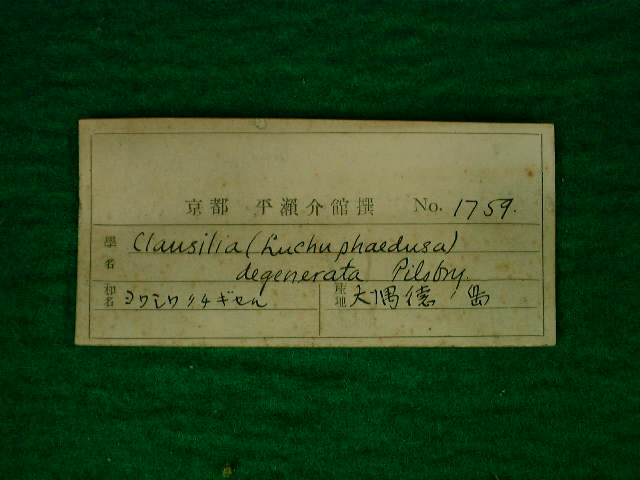 京都 平瀬介館撰 No. 1759.
學名 Clausilia (Luchuphaedusa)
degenerata Pilsbry
和名 ヨワミツクチギセル 産地 大隅德ノ島